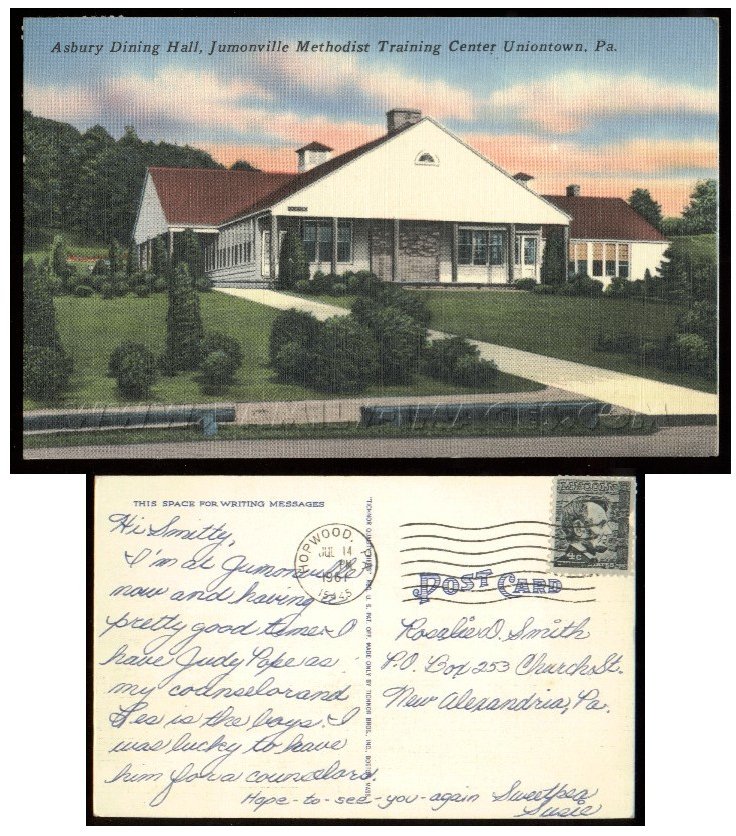 Asbury Dining Hall, Jumonville Methodist Training Center Uniontown, Pa.
THIS SPACE FOR WRITING MESSAGES
Hi Smitty,
I'm at Jumonville
now and having a
pretty good time. I
have Judy Pope as
my counselor and
Les is the boys. I
was lucky to have
him for a counselors.
Hope-to-see-you-again
Sweetpea
Susie
MADE ONLY BY TICHNOR BROS., INC., BOSTON, MASS.
HOPWOOD,
JUL 14
PM
1961
POST CARD
Rosalie D. Smith
P.O. Box 253 Church St.
New Alexandria, Pa.